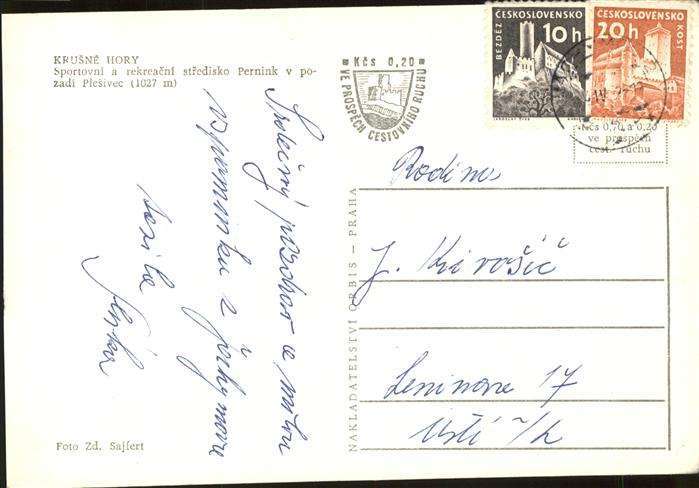 KRUŠNÉ HORY
Sportovní a rekreační středisko Pernink v po-
zadí Plešivec (1027 m)
Kčs 0,20
VE PROSPĚCH CESTOVNÍHO RUCHU
BEZDĚZ
ČESKOSLOVENSKO
10 h
ČESKOSLOVENSKO
20 h
KOST
Kčs 0,70 a 0,20
ve prospěch
cest. ruchu
Srdečný pozdrav a milou
vzpomínku z Jáchymova
Rodina
J. Kirašič
Leninova 17
Ústí n/L
NAKLADATELSTVÍ ORBIS – PRAHA
Foto Zd. Sajfert